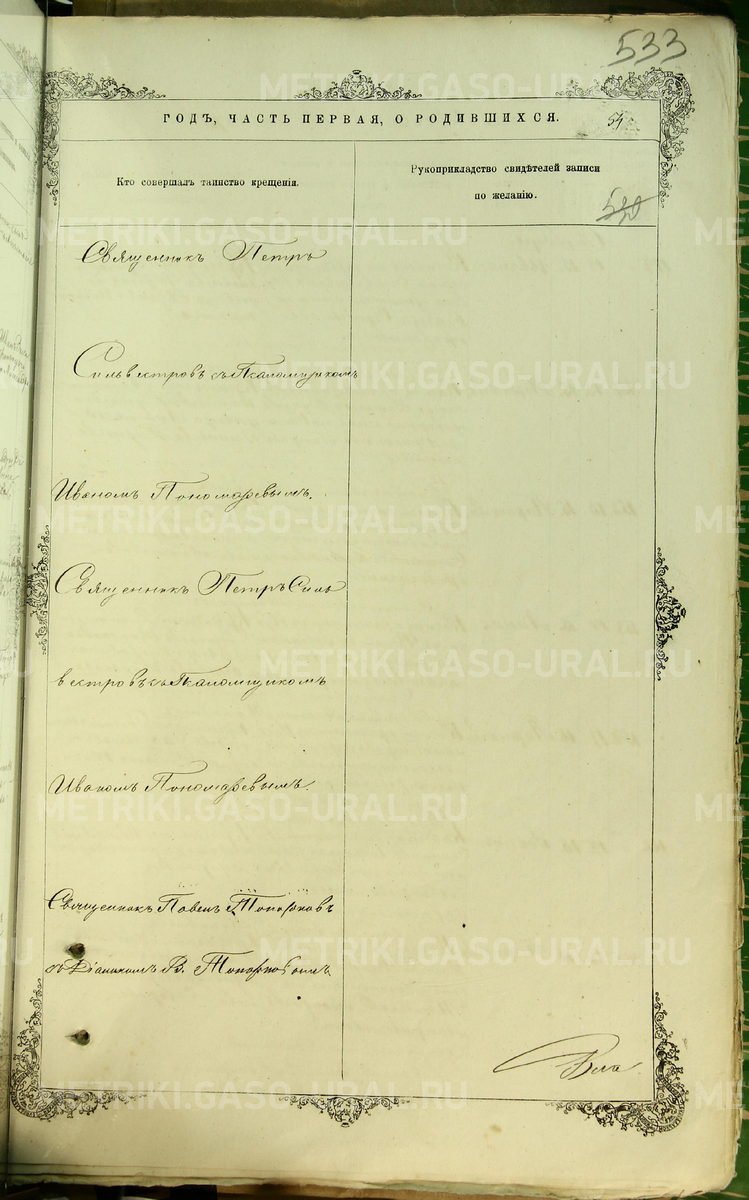 533
ГОДЪ, ЧАСТЬ ПЕРВАЯ, О РОДИВШИХСЯ.
54
Кто совершалъ таинство крещенія.
Рукоприкладство свидѣтелей записи
по желанію.
540
Священникъ Петръ
Сильвестровъ съ Псаломщикомъ
Иваномъ Пономаревымъ.
Священникъ Петръ Силь
вестровъ съ Псаломщикомъ
Иваномъ Пономаревымъ.
Священникъ Павелъ Топорковъ
съ Діакономъ В. Топорковымъ
METRIKI.GASO-URAL.RU